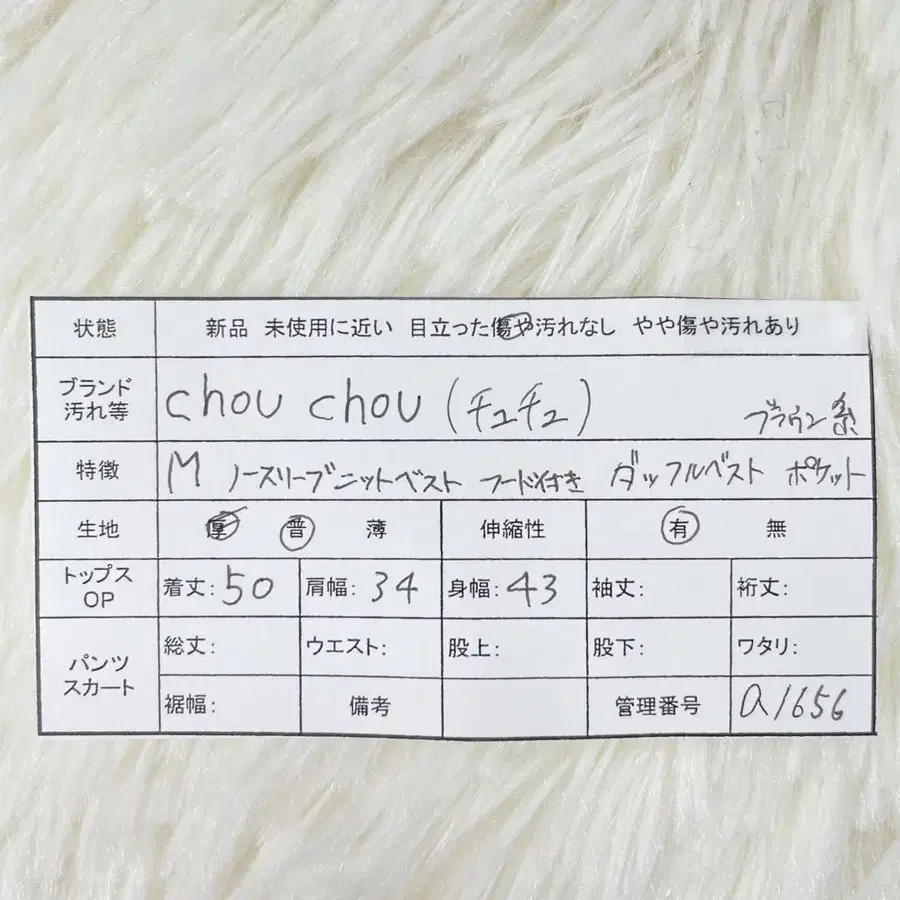 状態 新品 未使用に近い 目立った傷や汚れなし やや傷や汚れあり
ブランド
汚れ等 chou chou (チュチュ) ブラウン系
特徴 M ノースリーブニットベスト フード付き ダッフルベスト ポケット
生地 厚 普 薄 伸縮性 有 無
トップス
OP 着丈: 50 肩幅: 34 身幅: 43 袖丈: 裄丈:
パンツ
スカート 総丈: ウエスト: 股上: 股下: ワタリ:
裾幅: 備考 管理番号 a1656